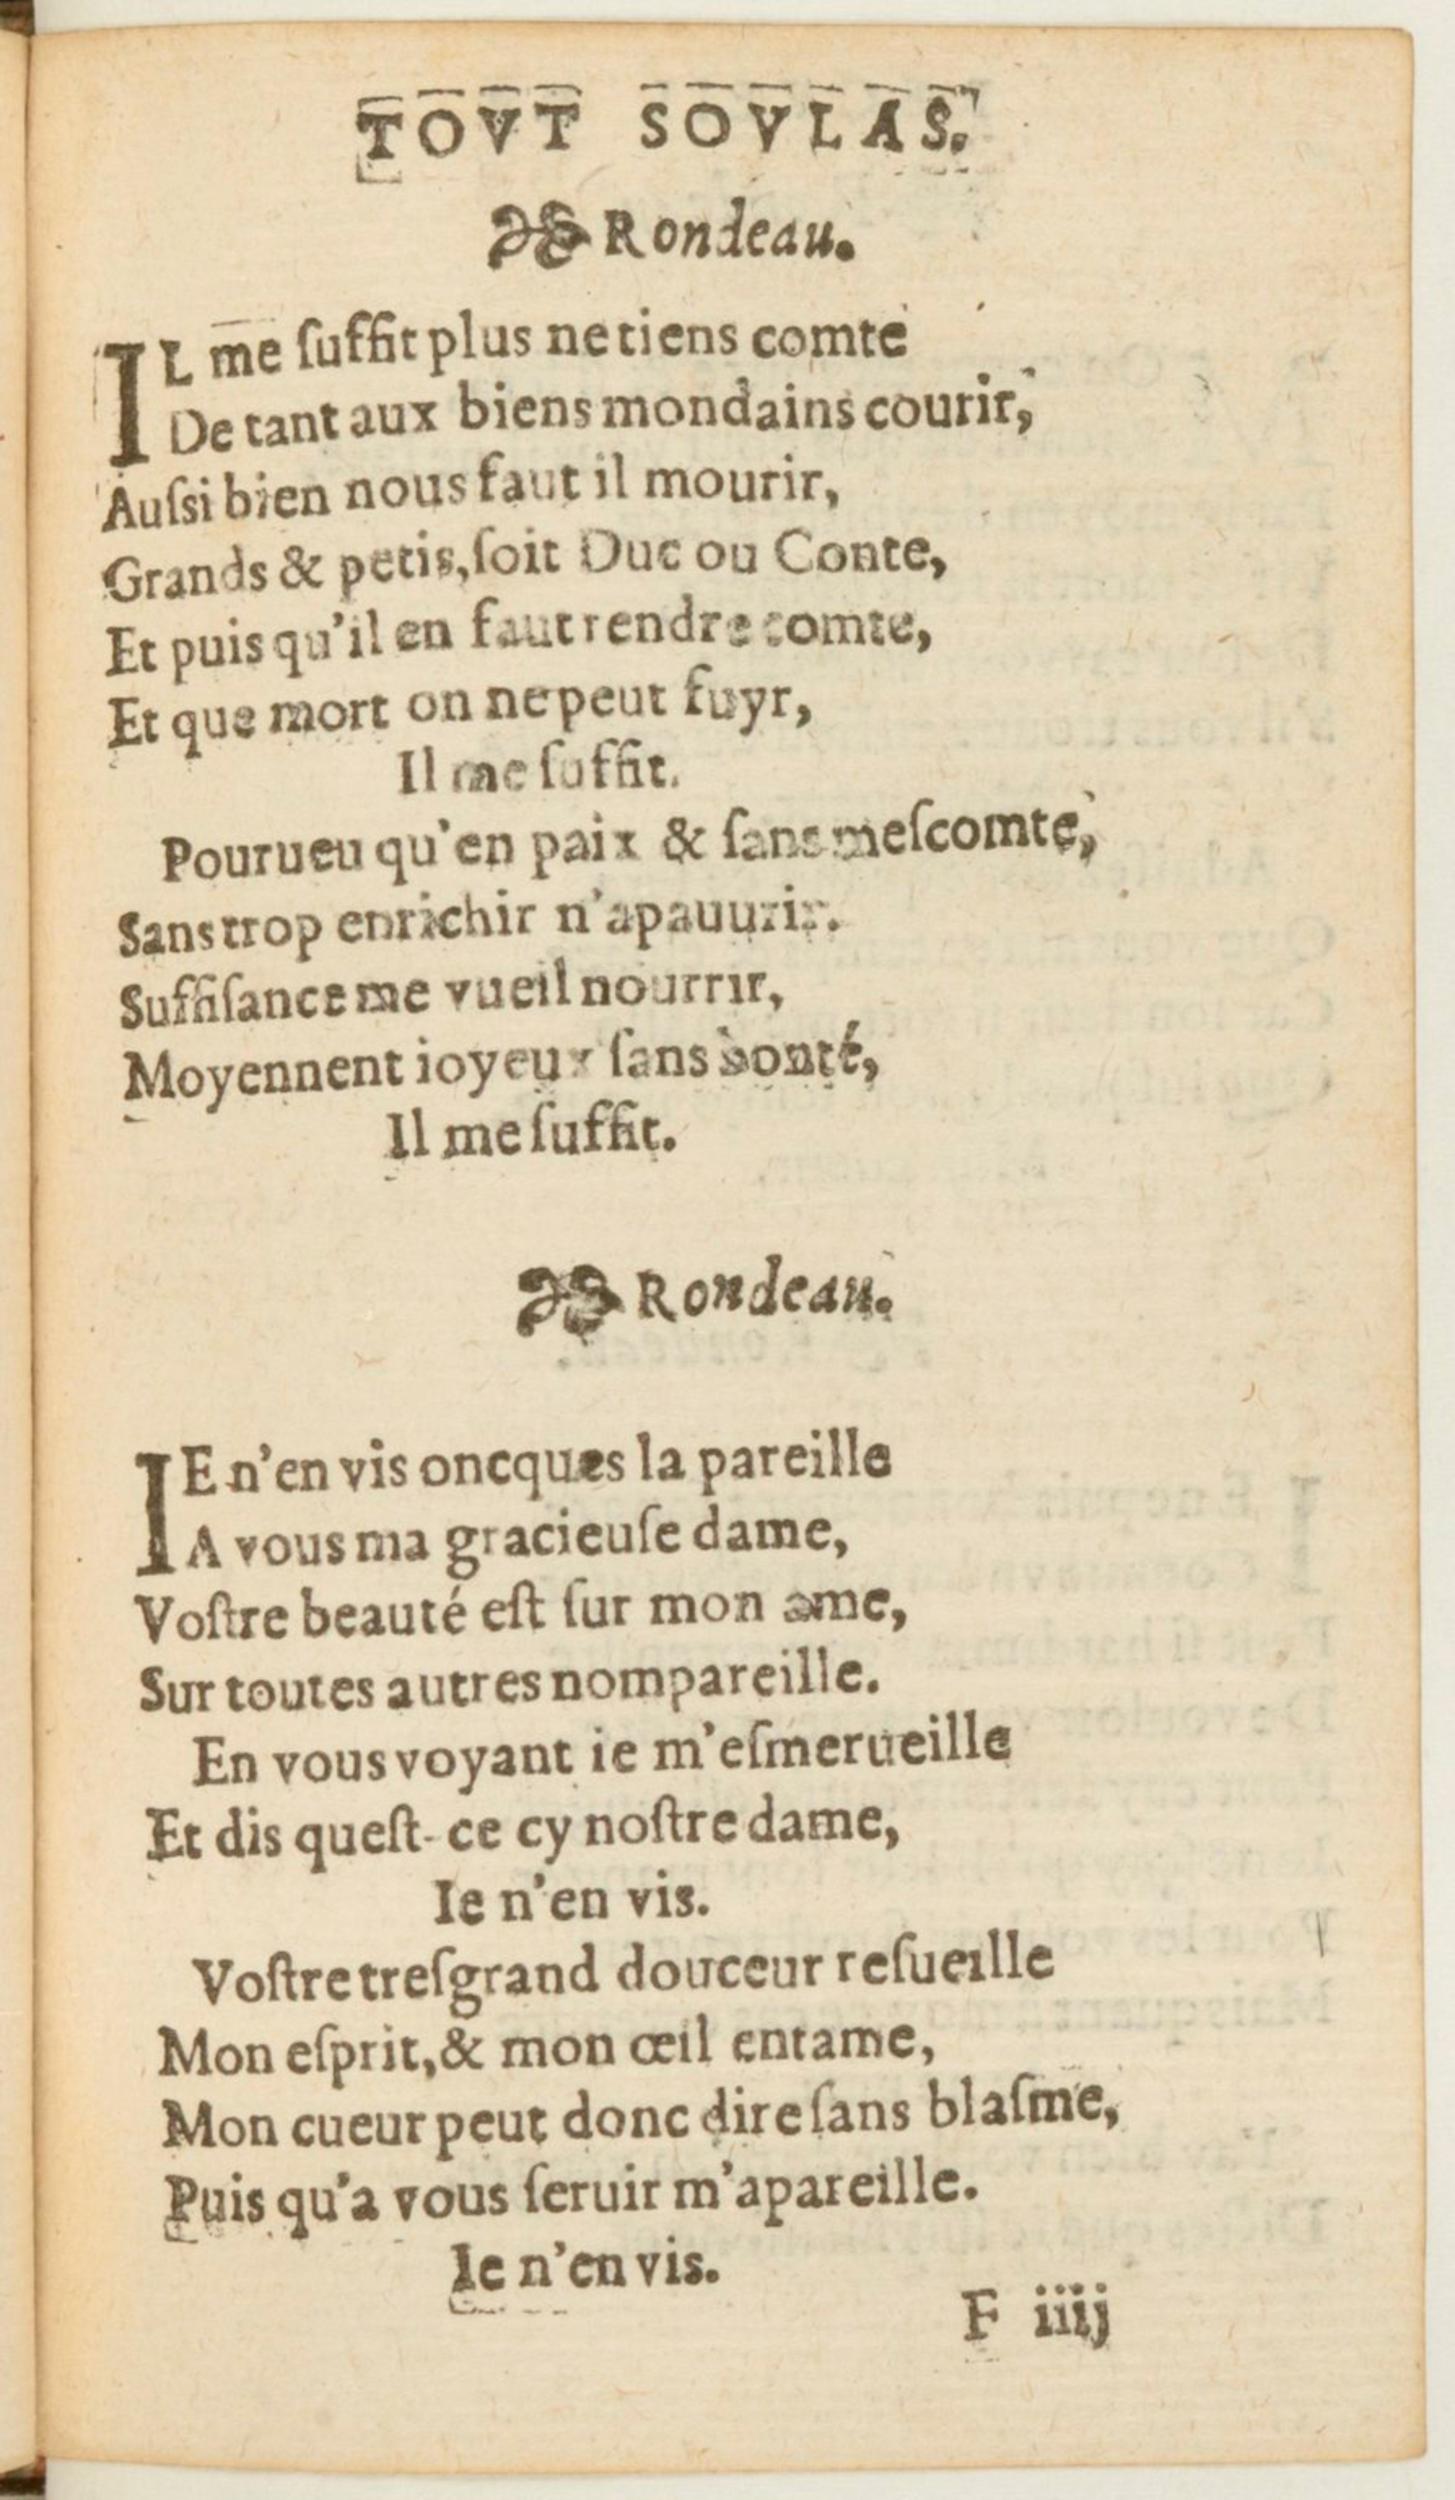 TOVT SOVLAS.
Rondeau.
IL me ſuffit plus ne tiens comte
De tant aux biens mondains courir,
Auſsi bien nous faut il mourir,
Grands & petis, ſoit Duc ou Conte,
Et puis qu'il en faut rendre comte,
Et que mort on ne peut fuyr,
Il me ſuffit.
Pourueu qu'en paix & ſans meſcomte,
Sans trop enrichir n'apauurir.
Suffiſance me vueil nourrir,
Moyennent ioyeux ſans bonté,
Il me ſuffit.
Rondeau.
IE n'en vis oncques la pareille
A vous ma gracieuſe dame,
Voſtre beauté eſt ſur mon ame,
Sur toutes autres nompareille.
En vous voyant ie m'eſmerueille
Et dis queſt-ce cy noſtre dame,
Ie n'en vis.
Voſtre treſgrand douceur reſueille
Mon eſprit, & mon œil entame,
Mon cueur peut donc dire ſans blaſme,
Puis qu'a vous ſeruir m'apareille.
Ie n'en vis.
F iiij